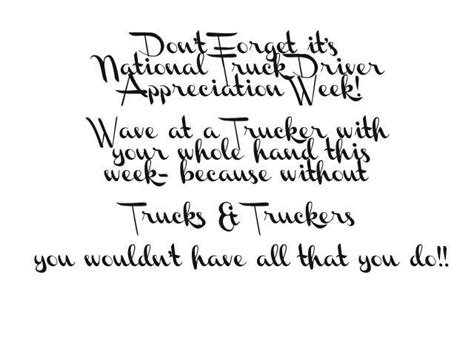 Don't Forget it's
National Truck Driver
Appreciation Week!
Wave at a Trucker with
your whole hand this
week- because without
Trucks & Truckers
you wouldn't have all that you do!!